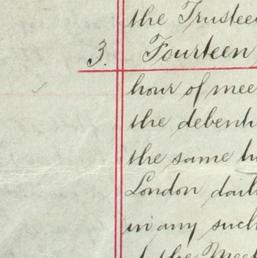 the Trustee
3. Fourteen
hour of mee
the debent
the same
London dail
in any such
the Meet